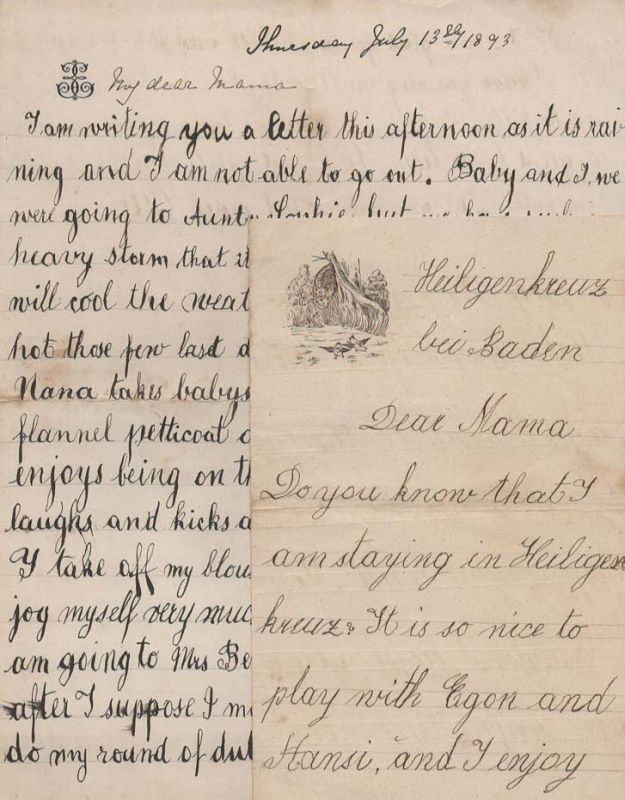 Thursday July 13th 1893
My dear Mama
I am writing you a letter this afternoon as it is rai-
ning and I am not able to go out. Baby and I we
were going to Aunty Sophie but
heavy storm that it
will cool the weat
hot those few last d
Nana takes babys
flannel petticoat o
enjoys being on th
laughs and kicks a
I take off my blou
jog myself very muc
am going to Mrs Be
after I suppose I mu
do my round of dut
Heiligenkreuz
bei Baden
Dear Mama
Do you know that I
am staying in Heiligen
kreuz? It is so nice to
play with Egon and
Hansi, and I enjoy